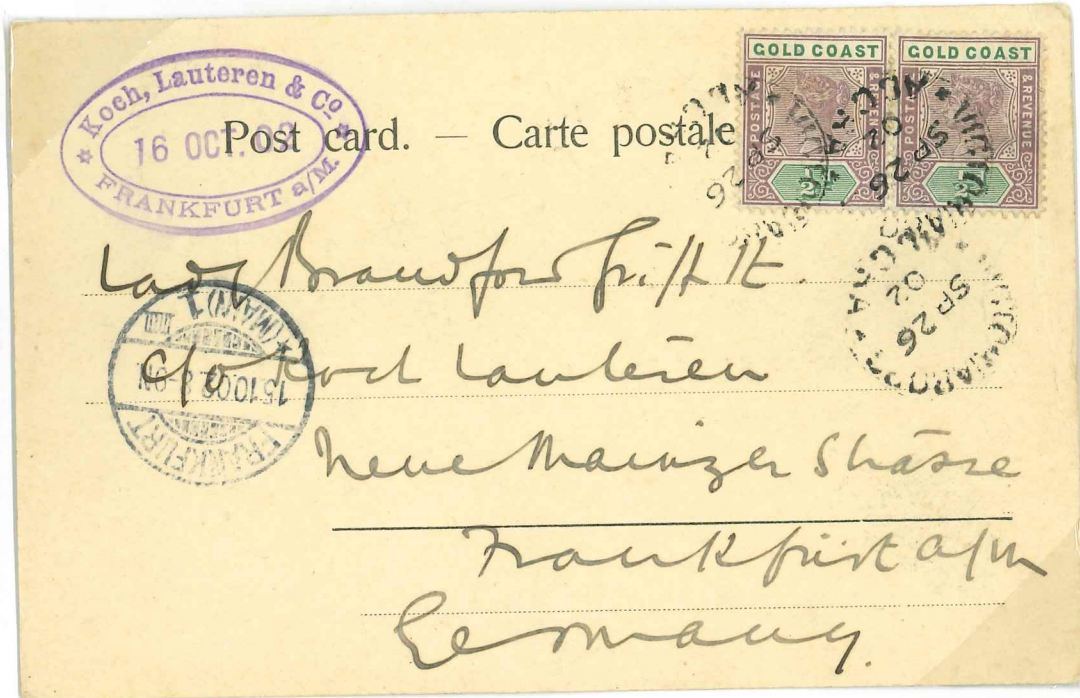 Koch, Lauteren & Co.
16 OCT. 02
FRANKFURT a/M.
Post card. — Carte postale
GOLD COAST
POSTAGE & REVENUE
½
GOLD COAST
POSTAGE & REVENUE
½
SP 26
SP 26
02
VICTORIABORG
ACCRA
SP 26
02
Lady Brandford Griffith.
c/o Koch Lauteren
Neue Mainzer Strasse
Frankfurt a/M
Germany.
FRANKFURT
15.10.02. 8-9N.
(MAIN) 1